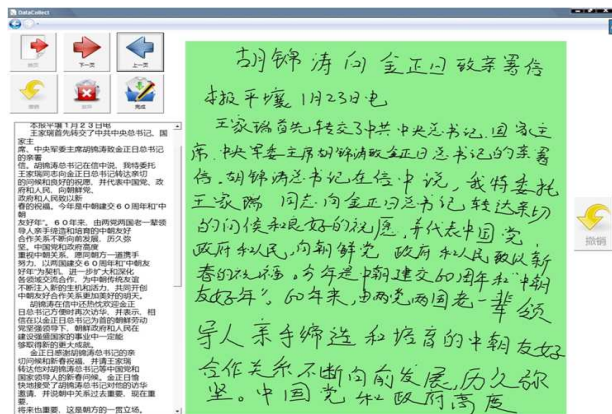 DataCollect
首页
下一页
上一页
撤销
完成
本报平壤1月23日电
王家瑞首先转交了中共中央总书记、国
家主
席、中央军委主席胡锦涛致金正日总书记
的亲署
信。胡锦涛总书记在信中说，我特委托
王家瑞同志向金正日总书记转达亲切
的问候和良好的祝愿，并代表中国党、政
府和人民，向朝鲜党、
政府和人民致以新
春的祝福。今年是中朝建交６０周年和“中
朝
友好年”。６０年来，由两党两国老一辈领
导人亲手缔造和培育的中朝友好
合作关系不断向前发展，历久弥
坚。中国党和政府高度
重视中朝关系，愿同朝方一道携手
努力，以两国建交６０周年和“中朝友
好年”为契机，进一步扩大和深化
各领域交流合作，为中朝传统友谊
不断注入新的生机和活力，共同开创
中朝友好合作关系更加美好的明天。
胡锦涛在信中还热忱欢迎金正
日总书记方便时再次访华，并表示，相
信在以金正日总书记为首的朝鲜劳动
党坚强领导下，朝鲜政府和人民在
建设强盛国家的事业中一定能
够取得新的更大成就。
金正日感谢胡锦涛总书记的亲
切问候和新春祝福，并请王家瑞
转达他对胡锦涛总书记等中国党和
国家领导人的新春问候。金正日愉
快地接受了胡锦涛总书记对他的访华
邀请，并说朝中关系过去重要，现在重
要，
将来也重要，这是朝方的一贯立场。
胡锦涛向金正日致亲署信
本报平壤1月23日电
王家瑞首先转交了中共中央总书记、国家主
席、中央军委主席胡锦涛致金正日总书记的亲署
信。胡锦涛总书记在信中说，我特委托
王家瑞同志向金正日总书记转达亲切
的问候和良好的祝愿，并代表中国党
政府和人民，向朝鲜党、政府和人民致以新
春的祝福。今年是中朝建交60周年和“中朝
友好年”。60年来，由两党两国老一辈领
导人亲手缔造和培育的中朝友好
合作关系不断向前发展，历久弥
坚。中国党和政府高度
撤销